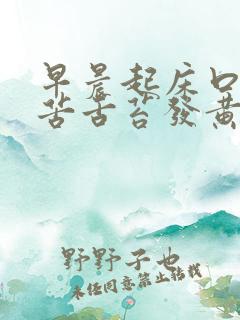 早晨起床口
苦舌苔發黃
野野子也
未經同意禁止轉載